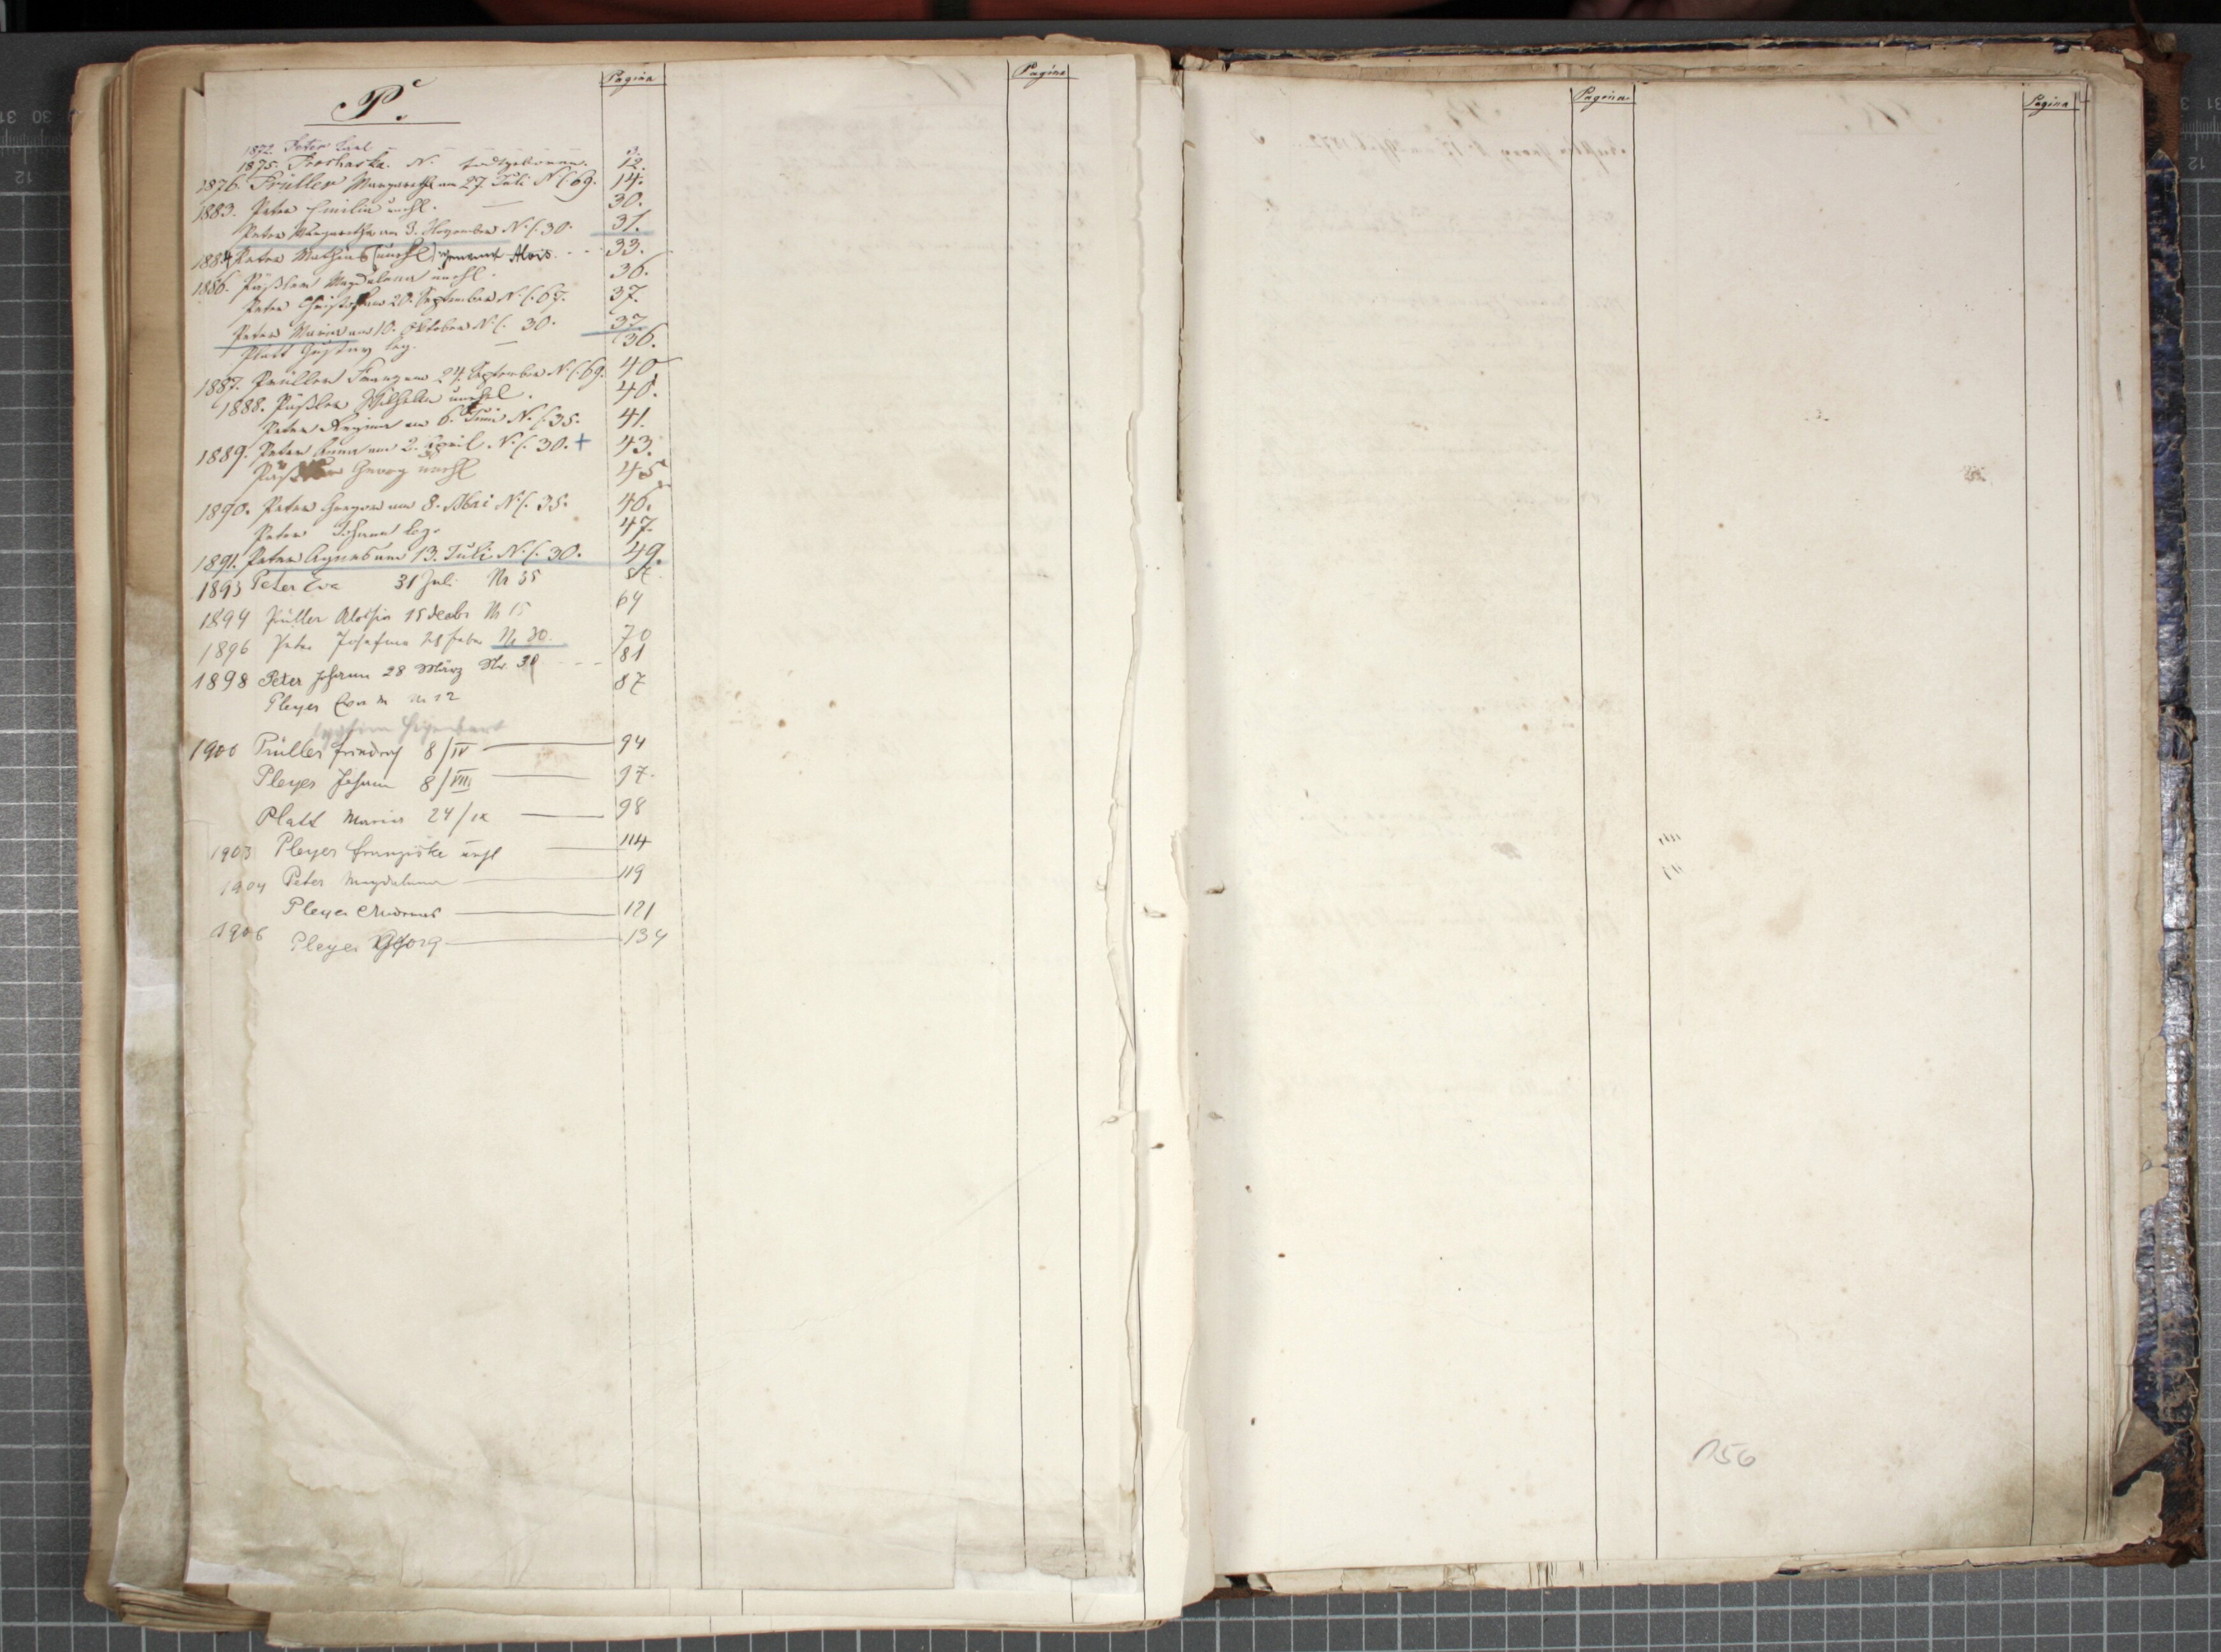 P.
Pagina
Pagina
1872. Peter Karl 3.
1875. Proshaska. N. todtgeboren. 12.
1876. Prüller Margareth am 27. Juli N. C. 69. 14.
1883. Peter Emilia unehl. — 30.
Peter Margaretha am 3. November N. C. 30. 31.
1884 Peter Mathias (unehl) genannt Alois. 33.
1886. Püßler Magdalena unehl. 36.
Peter Christof am 20. September N. C. 67. 37.
Peter Maria am 10. Oktober N. C. 30. 37
Platt Gustav leg. — 36.
1887. Prüller Franz am 24. September N. C. 69. 40
1888. Püßler Wilhelm unehel. 40.
Peter Regina am 6. Juni N. C. 35. 41.
1889. Peter Anna am 2. April N. C. 30. + 43.
Georg unehl 45.
1890. Peter Gregor am 8. Mai N. C. 35. 46.
Peter Johann leg. 47.
1891. Peter Agnes am 13. Juli N. C. 30. 49.
1893 Peter Eva 31 Juli Nr 35
1894 Prüller Aloisia 15 Decbr Nr 15 64
1896 Peter Josefine Nr 30. 70
1898 Peter Johann 28 März Nr. 30 81
Pleyer Eva 87
1900 Prüller Friedrich 8/IV — 94
Pleyer Johann 8/VIII — 97.
Platt Maria 24/IX — 98
1903 Pleyer Franziska unehl — 114
1904 Peter Magdalena — 119
Pleyer Andreas — 121
1906 Pleyer Georg — 134
Pagina
Pagina
156